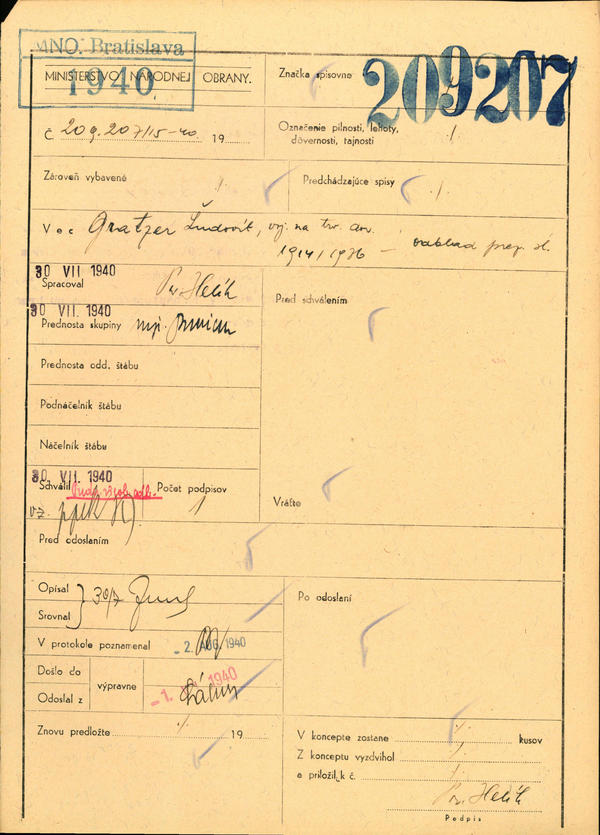 MNO. Bratislava
1940
MINISTERSTVO NÁRODNEJ OBRANY.
Značka spisovne
209207
č 209.207/15-40. 19
Označenie pilnosti, lehoty, dôvernosti, tajnosti
Zároveň vybavené
Predchádzajúce spisy
Vec Gratzer Ľudovít, voj. na trv. dov.
1914/1936 — odklad prez. sl.
30 VII 1940
Spracoval
Pred schválením
30 VII. 1940
Prednosta skupiny mjr.
Prednosta odd. štábu
Podnáčelník štábu
Náčelník štábu
30 VII. 1940
Schválil
Počet podpisov 1
Vráťte
vz. pplk
Pred odoslaním
Opísal
Srovnal
30/7
Po odoslaní
V protokole poznamenal
- 2. AUG. 1940
Došlo do
Odoslal z
výpravne
- 1. 1940
Znovu predložte 19
V koncepte zostane kusov
Z konceptu vyzdvihol
a priložil k č.
Podpis